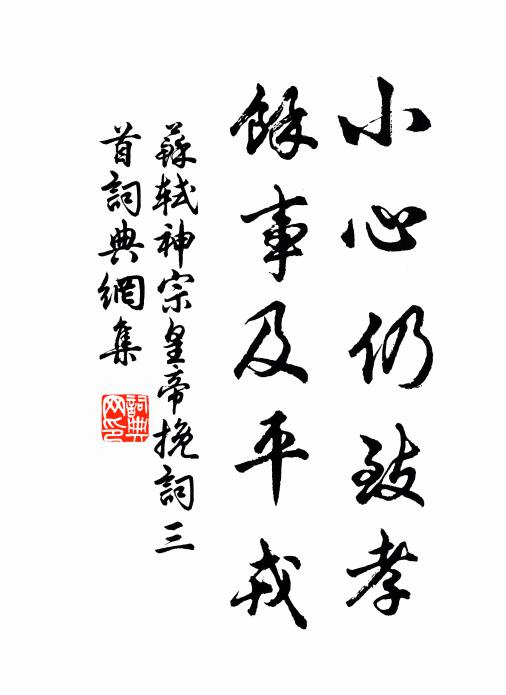 小心仍致孝
餘事及平戎
蘇軾神宗皇帝挽詞三
首詞典網集
詞典網印